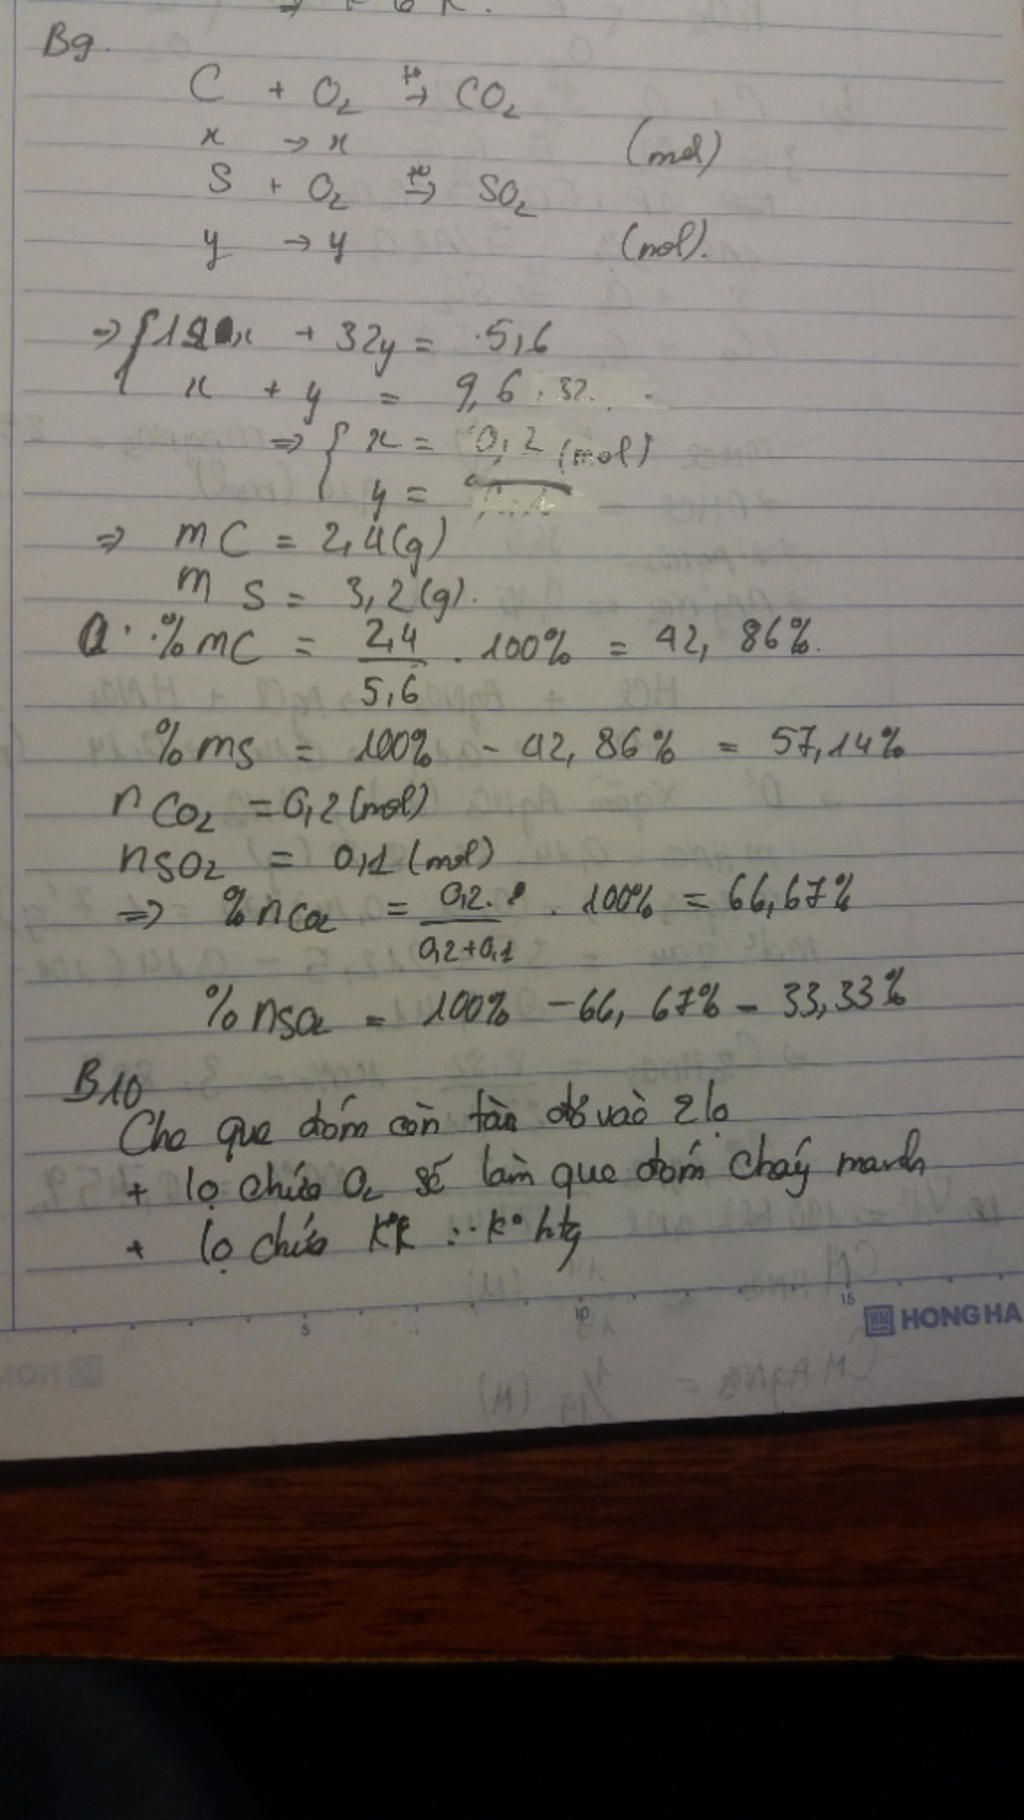 B9.
C + O2 t° → CO2
x → x (mol)
S + O2 t° → SO2
y → y (mol).
⇒ { 12x + 32y = 5,6
x + y = 9,6 : 32
⇒ { x = 0,2 (mol)
y =
⇒ mC = 2,4(g)
mS = 3,2(g).
a. %mC = 2,4/5,6 . 100% = 42,86%.
%mS = 100% - 42,86% = 57,14%
nCO2 = 0,2(mol)
nSO2 = 0,1(mol)
⇒ %nCO2 = 0,2/0,2+0,1 . 100% = 66,67%
%nSO2 = 100% - 66,67% = 33,33%
B10
Cho que đóm còn tàn đỏ vào 2 lọ
+ lọ chứa O2 sẽ làm que đóm cháy mạnh
+ lọ chứa KK : k° htg
5 10 15
HONG HA